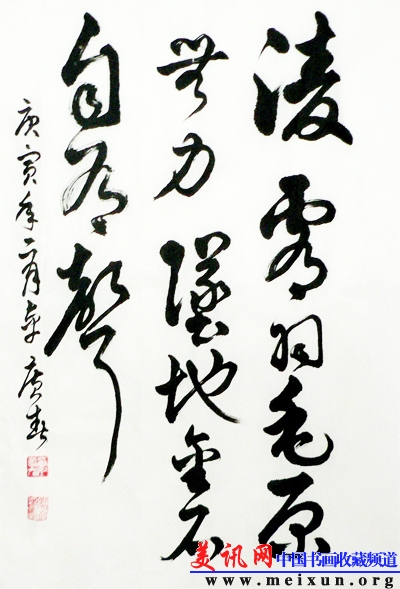 凌霄羽毛原
無力墜地金石
自有聲
庚寅年二月 廣春
美讯网中国书画收藏频道
www.meixun.org